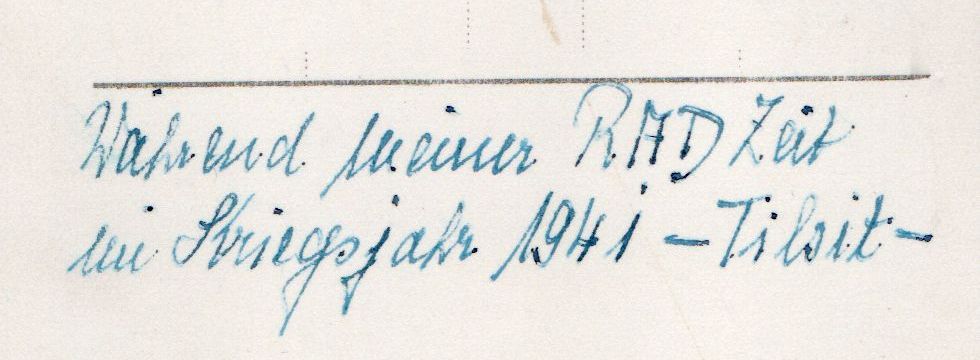 Während meiner RAD Zeit
im Kriegsjahr 1941 – Tilsit –